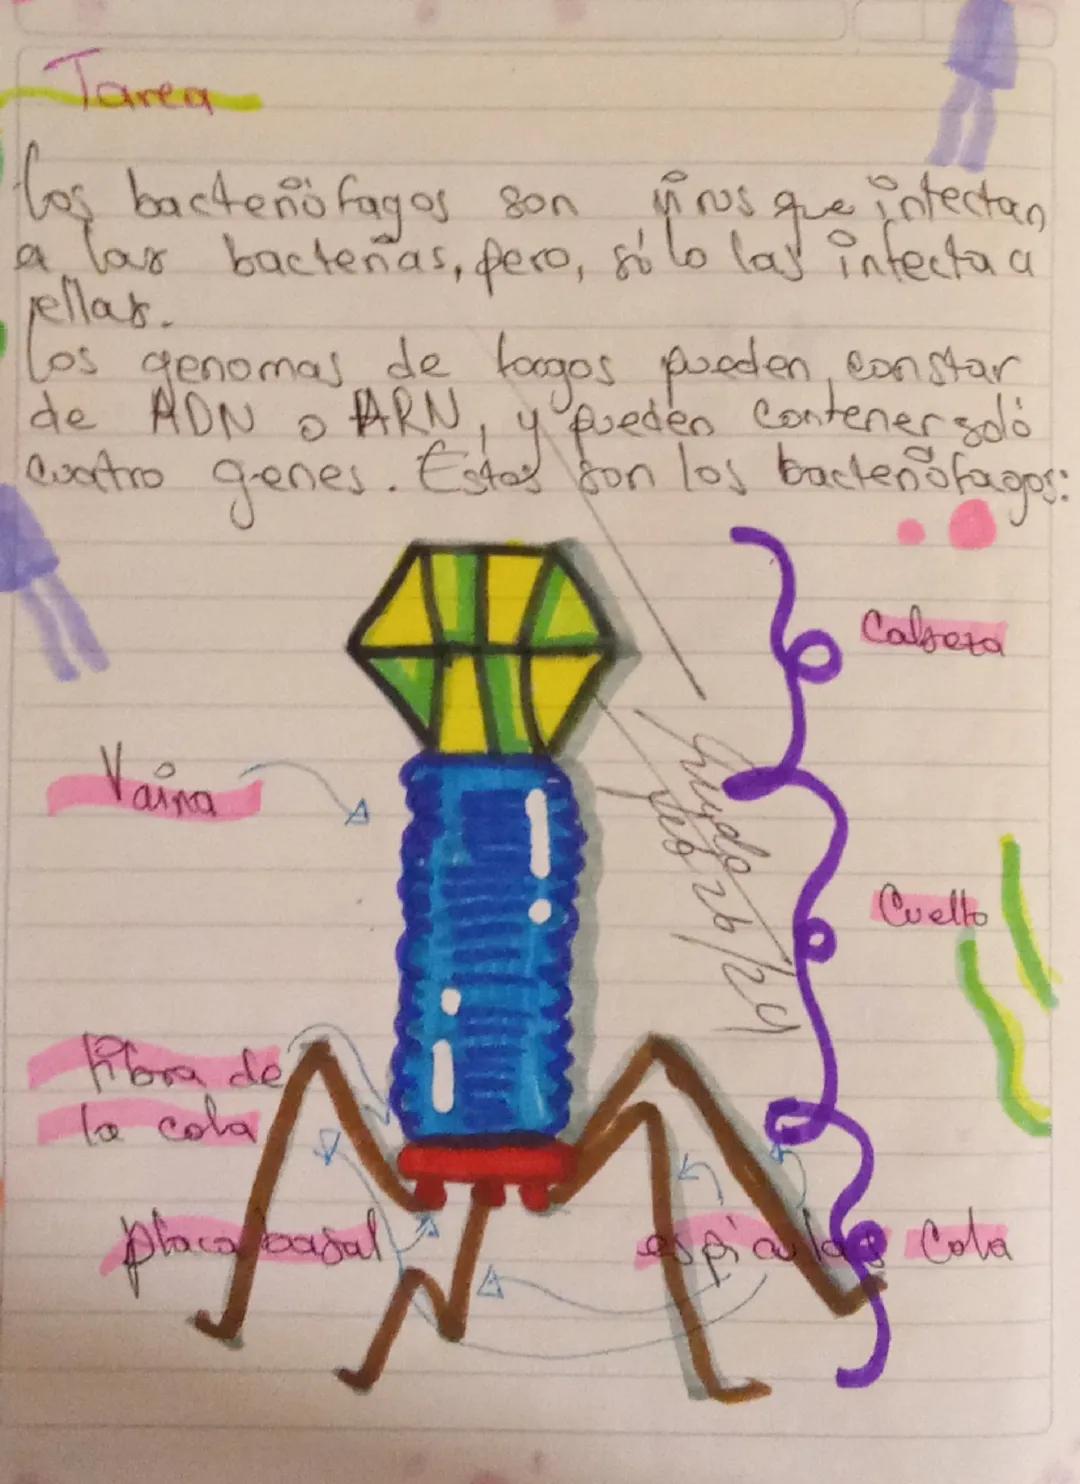 Tarea
Los bacteriófagos son virus que infectan
a las bacterias, pero, sólo las infecta a
ellas.
Los genomas de fagos pueden, constar
de ADN o ARN, y pueden contener soló
cuatro genes. Estos son los bacteriófagos:
Cabeza
Vaina
Cuello
Fibra de
la cola
placa basal
espiculas
Cola